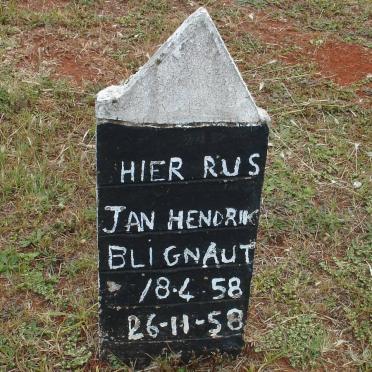 HIER RUS
JAN HENDRIK
BLIGNAUT
18.4 58
26-11-58